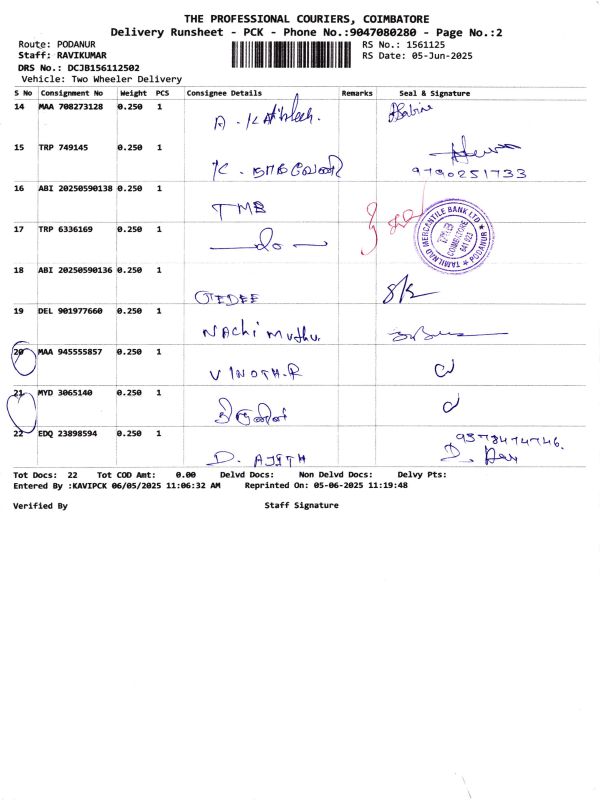 THE PROFESSIONAL COURIERS, COIMBATORE
Delivery Runsheet - PCK - Phone No.:9047080280 - Page No.:2
Route: PODANUR RS No.: 1561125
Staff: RAVIKUMAR RS Date: 05-Jun-2025
DRS No.: DCJB156112502
Vehicle: Two Wheeler Delivery
S No Consignment No Weight PCS Consignee Details Remarks Seal & Signature
14 MAA 708273128 0.250 1
A.
15 TRP 749145 0.250 1
K.
9790251733
16 ABI 20250590138 0.250 1
TMB
TAMILNAD MERCANTILE BANK LTD
COIMBATORE
641 023
PODANUR
17 TRP 6336169 0.250 1
do
18 ABI 20250590136 0.250 1
GEDEE
19 DEL 901977660 0.250 1
Nachi Muthu.
20 MAA 945555857 0.250 1
VINOTH.R
21 MYD 3065140 0.250 1
22 EDQ 23898594 0.250 1
D. AJITH
Tot Docs: 22 Tot COD Amt: 0.00 Delvd Docs: Non Delvd Docs: Delvy Pts:
Entered By :KAVIPCK 06/05/2025 11:06:32 AM Reprinted On: 05-06-2025 11:19:48
Verified By Staff Signature